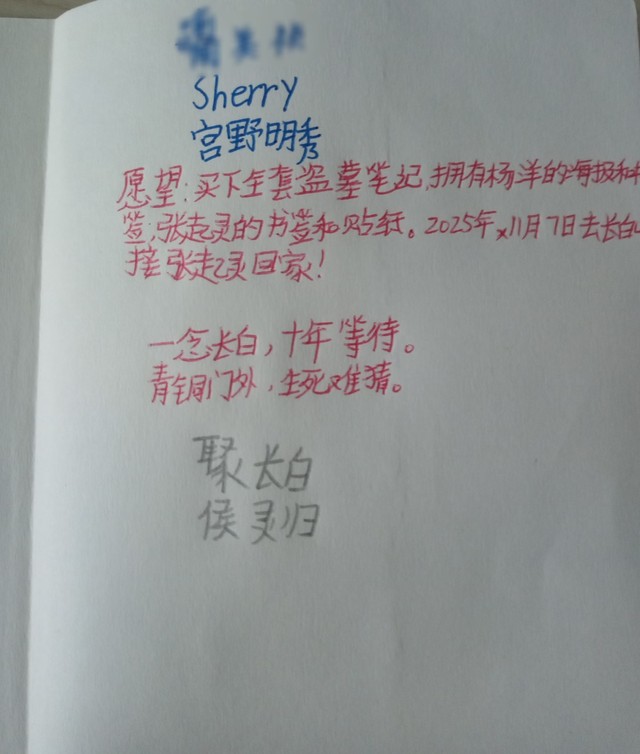 Sherry
宫野明秀
愿望:买下全套盗墓笔记,拥有杨洋的海报和
签,张起灵的书签和贴纸。2025年x11月7日去长白
接张起灵回家!
一念长白,十年等待。
青铜门外,生死难猜。
聚长白
侯灵归